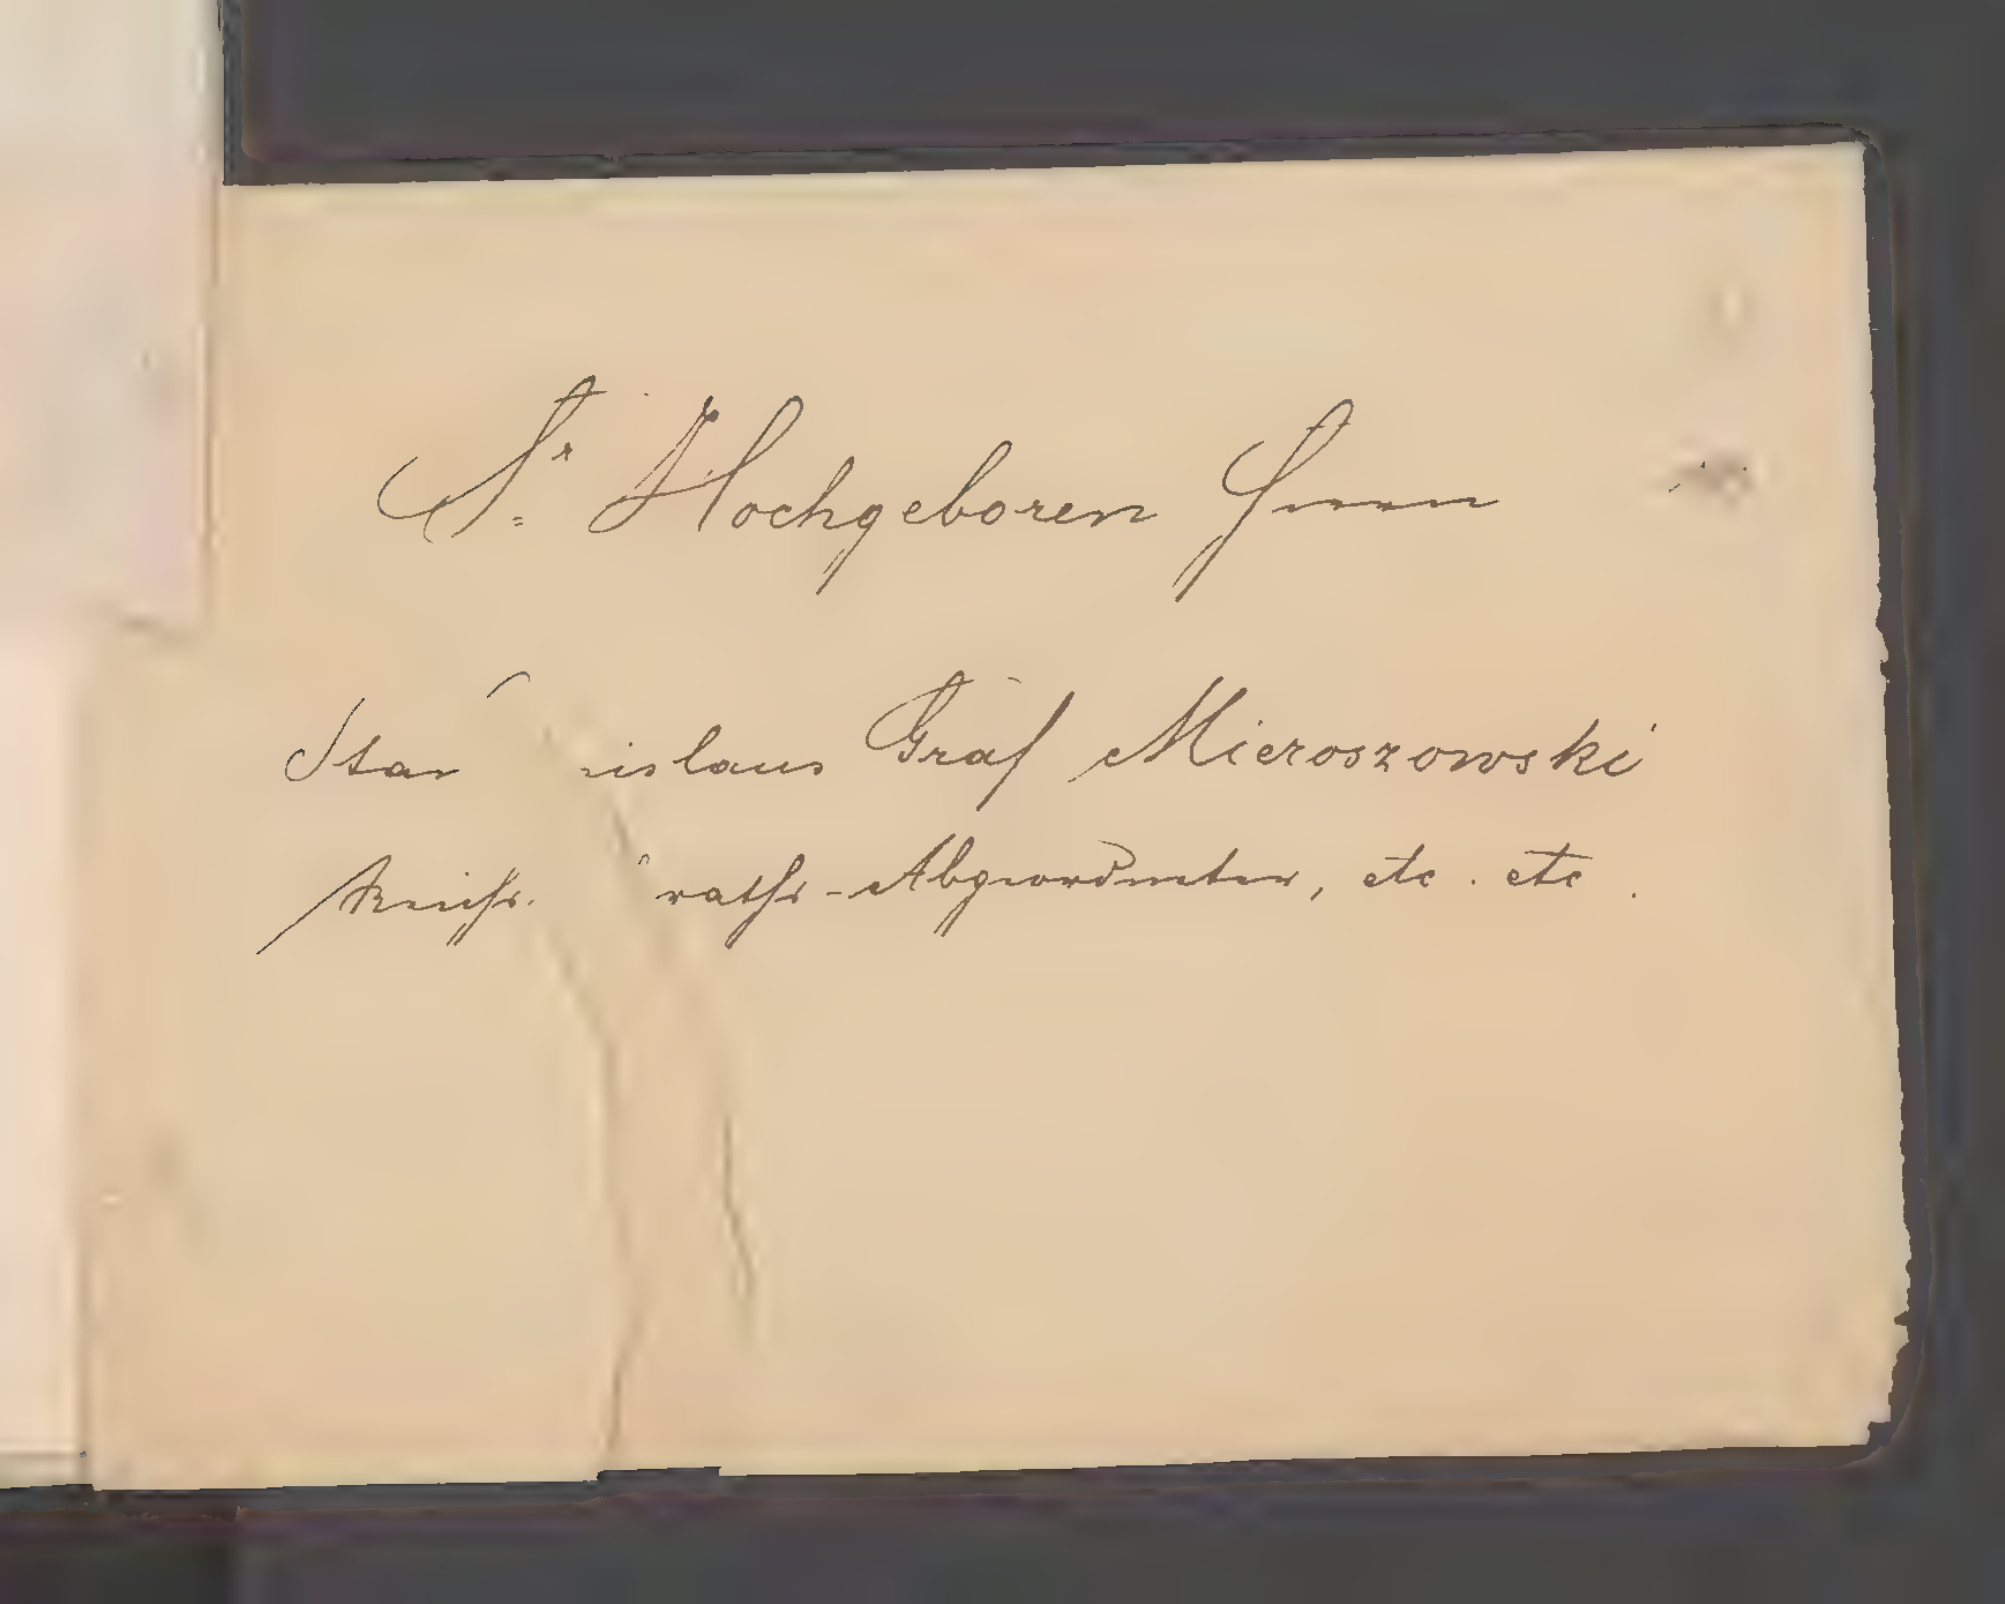 Sr. Hochgeboren Herrn
Stanislaus Graf Mieroszowski
Reichsraths-Abgeordneter, etc. etc.